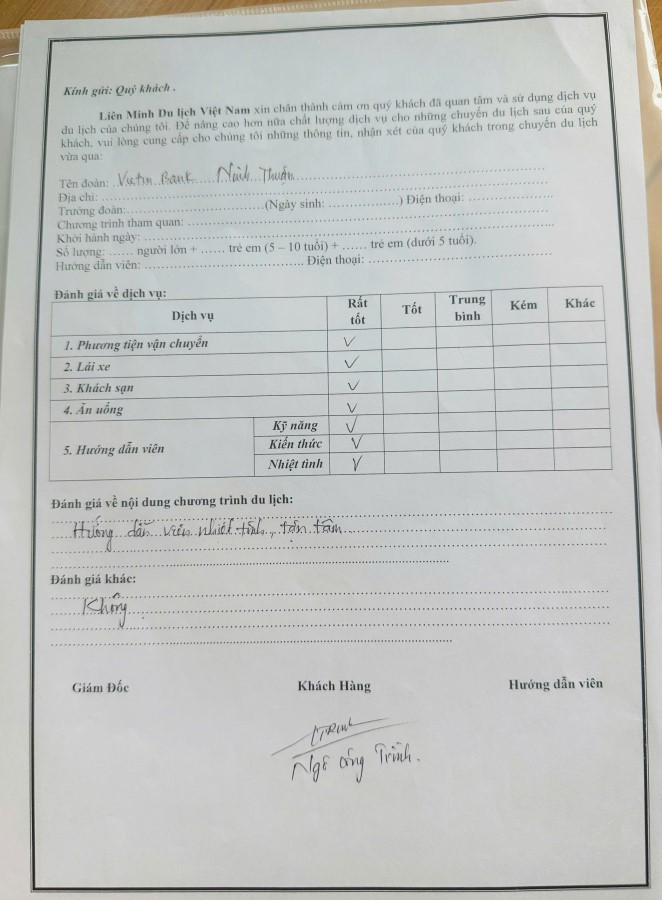 Kính gửi: Quý khách .
Liên Minh Du lịch Việt Nam xin chân thành cảm ơn quý khách đã quan tâm và sử dụng dịch vụ
du lịch của chúng tôi. Để nâng cao hơn nữa chất lượng dịch vụ cho những chuyến du lịch sau của quý
khách, vui lòng cung cấp cho chúng tôi những thông tin, nhận xét của quý khách trong chuyến du lịch
vừa qua:
Tên đoàn: Vietin Bank Ninh Thuận
Địa chỉ: ........................
Trưởng đoàn:........................(Ngày sinh: ................) Điện thoại: ................
Chương trình tham quan: ........................
Khởi hành ngày: ........................
Số lượng: ...... người lớn + ...... trẻ em (5 – 10 tuổi) + ...... trẻ em (dưới 5 tuổi).
Hướng dẫn viên: ........................ Điện thoại: ........................
Đánh giá về dịch vụ:
Dịch vụ Rất tốt Tốt Trung bình Kém Khác
1. Phương tiện vận chuyển ✓
2. Lái xe ✓
3. Khách sạn ✓
4. Ăn uống ✓
5. Hướng dẫn viên Kỹ năng ✓
Kiến thức ✓
Nhiệt tình ✓
Đánh giá về nội dung chương trình du lịch:
Hướng dẫn viên nhiệt tình, tận tâm
Đánh giá khác:
Không
Giám Đốc Khách Hàng Hướng dẫn viên
Trình
Ngô Công Trình.